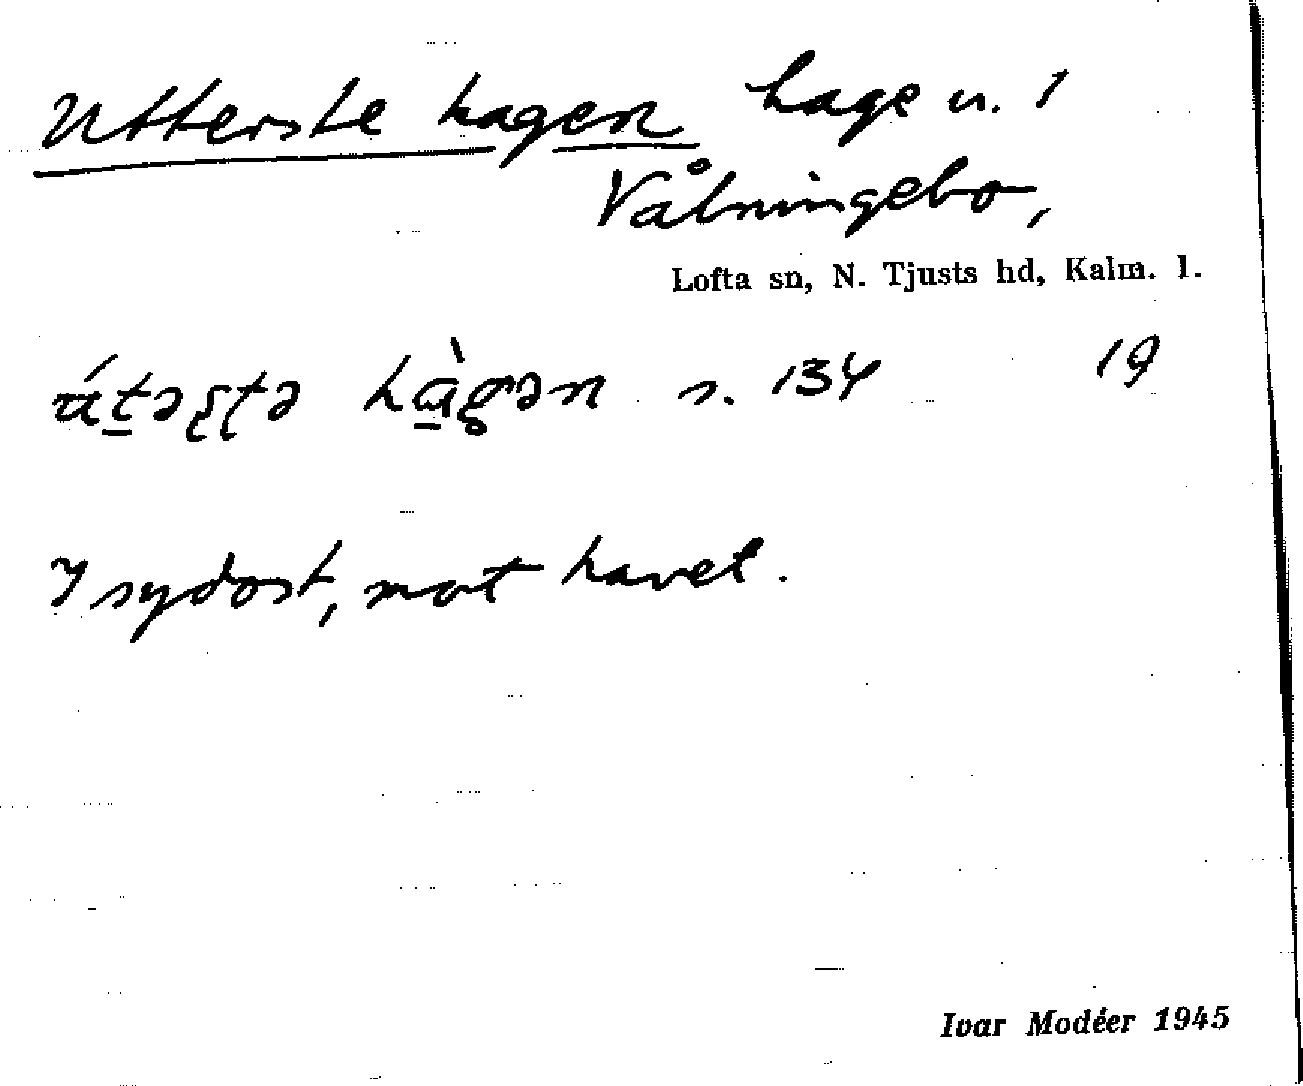 Utterste hagen hage u. 1
Vålningebo,
Lofta sn, N. Tjusts hd, Kalm. l.
s. 134 19
I sydost, mot havet.
Ivar Modéer 1945